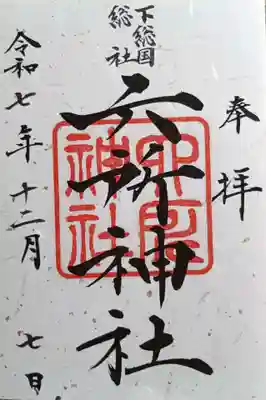 奉拝
下総国
総社
六所神社
令和七年十二月七日